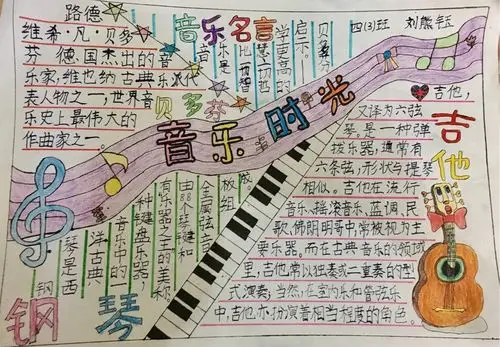 路德
维希·凡·贝多
芬 德国杰出的音
乐家,维也纳古典乐派代
表人物之一,世界音
乐史上最伟大的
作曲家之一。
贝多芬
音乐名言
音
乐是
比一切智
慧一切哲
学更高的
启示。——
贝多芬
四(3)班 刘熊
音乐时光
吉他
吉他,
又译为六弦
琴。是一种弹
拨乐器,通常有
六条弦,形状与提琴
相似。吉他在流行
音乐、摇滚音乐、蓝调、民
歌、佛朗明哥中常被视为主
要乐器。而在古典音乐的领域
里,吉他常以独奏或二重奏的型
式演奏;当然,在室内乐和管弦乐
中,吉他亦扮演着相当程度的角色。
钢琴
钢
琴是西
洋古典
音乐中的一
种键盘乐器,
有乐器之王的美称。
由88个琴键和
金属弦音
板组成。